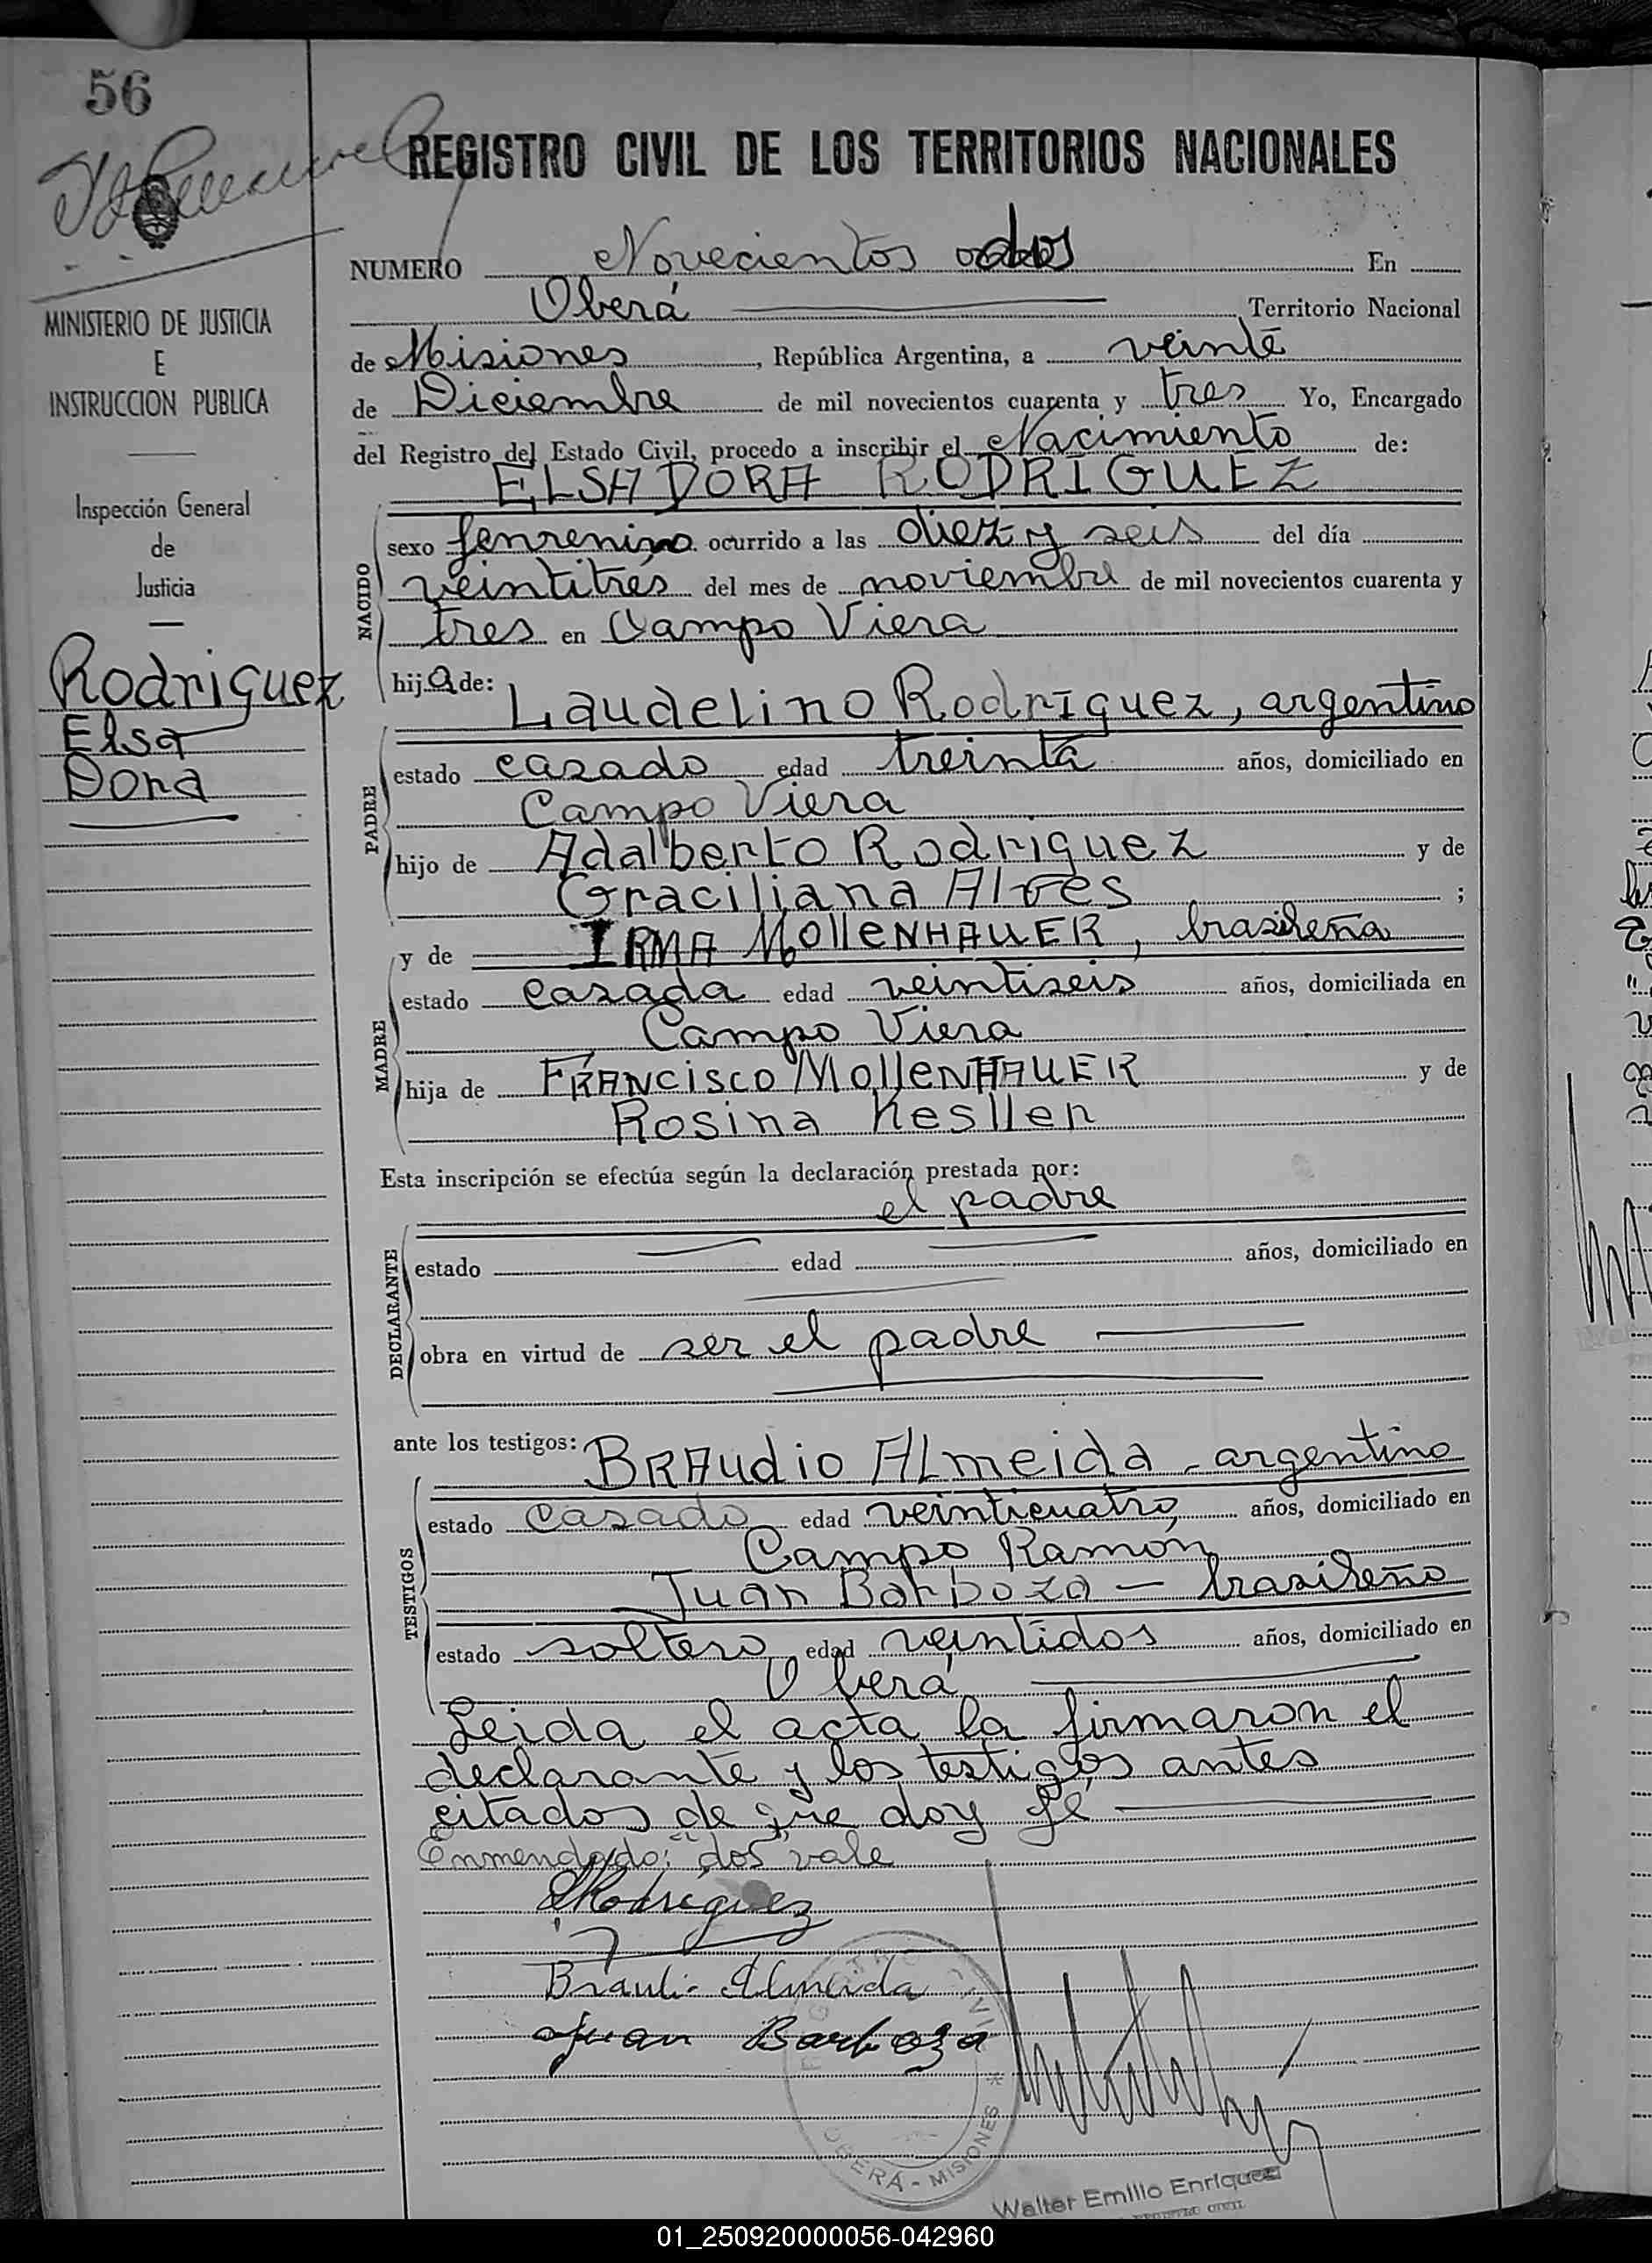 56
REGISTRO CIVIL DE LOS TERRITORIOS NACIONALES
NUMERO Novecientos dos En
Oberá Territorio Nacional
de Misiones, República Argentina, a veinte
de Diciembre de mil novecientos cuarenta y tres Yo, Encargado
del Registro del Estado Civil, procedo a inscribir el Nacimiento de:
ELSA DORA RODRÍGUEZ
NACIDO
sexo femenino ocurrido a las diez y seis del día
veintitrés del mes de noviembre de mil novecientos cuarenta y
tres en Campo Viera
hija de: Laudelino Rodríguez, argentino
PADRE
estado casado edad treinta años, domiciliado en
Campo Viera
hijo de Adalberto Rodriguez y de
Graciliana Alves ;
y de IRMA MollENHAUER, brasileña
MADRE
estado casada edad veintiseis años, domiciliada en
Campo Viera
hija de FRANCISCO MollENHAUER y de
Rosina Kesller
Esta inscripción se efectúa según la declaración prestada por:
el padre
DECLARANTE
estado edad años, domiciliado en
obra en virtud de ser el padre
ante los testigos: BRAudio ALmeida - argentino
TESTIGOS
estado casado edad veinticuatro, años, domiciliado en
Campo Ramón
Juan Barboza - brasileño
estado soltero edad veintidos años, domiciliado en
Oberá
Leida el acta la firmaron el
declarante y los testigos antes
citados de que doy fé
Enmendado: "dos" vale
LRodriguez
Braulio Almeida
Juan Barboza
OBERÁ - MISIONES
Walter Emilio Enriquez
MINISTERIO DE JUSTICIA
E
INSTRUCCION PUBLICA
Inspección General
de
Justicia
Rodriguez
Elsa
Dora
01_250920000056-042960